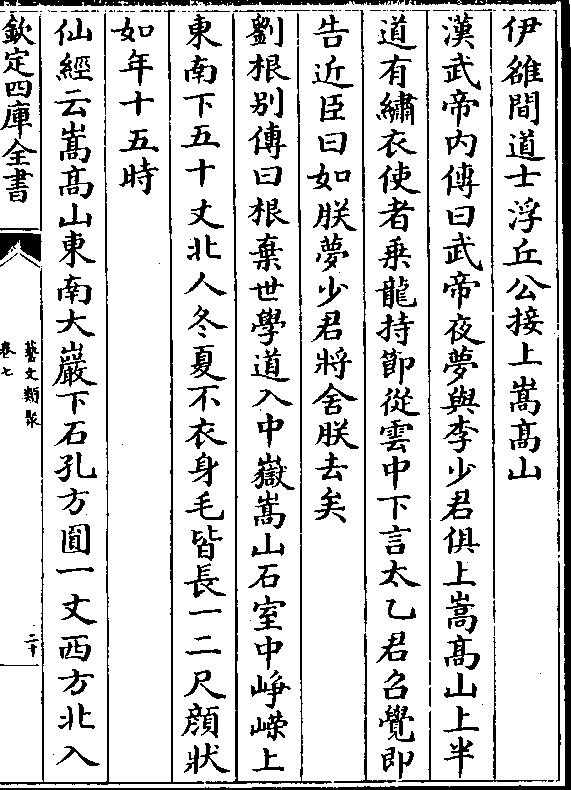 伊雒間道士浮丘公接上嵩髙山
漢武帝内傳曰武帝夜夢與李少君俱上嵩髙山上半
道有繡衣使者乘龍持節從雲中下言太乙君召覺即
告近臣曰如朕夢少君將舍朕去矣
劉根别傳曰根棄世學道入中嶽嵩山石室中崢嶸上
東南下五十丈北人冬夏不衣身毛皆長一二尺顔狀
如年十五時
仙經云嵩髙山東南大巖下石孔方圓一丈西方北入
欽定四庫全書
藝文類聚
卷七
二十